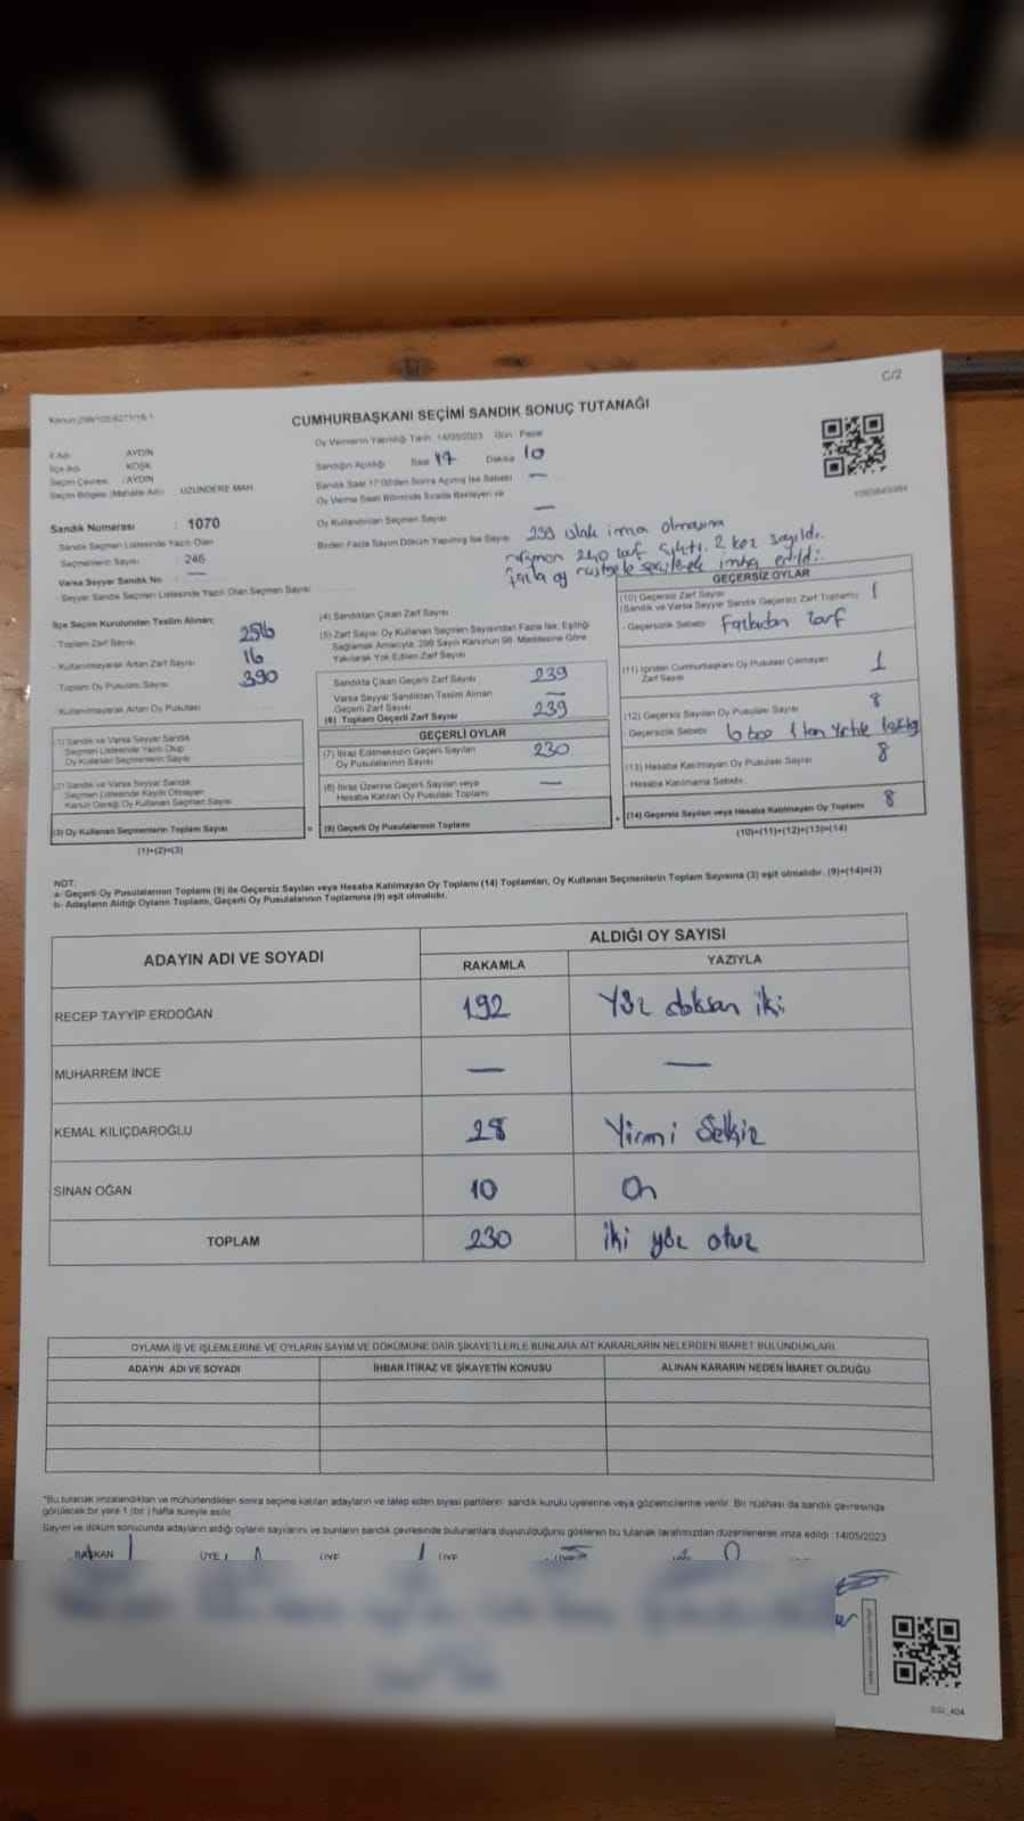 C/2
CUMHURBAŞKANI SEÇİMİ SANDIK SONUÇ TUTANAĞI
Oy Vermenin Yapıldığı Tarih 14/05/2023 Gün Pazar
İl Adı AYDIN
İlçe Adı KÖŞK
Seçim Çevresi AYDIN
Seçim Bölgesi (Mahalle Adı) UZUNDERE MAH.
Sandığın Açıldığı Saat 17 Dakika 10
Sandık Saat 17:00'den Sonra Açılmış İse Sebebi —
Oy Kullandırılan Seçmen Sayısı —
Sandık Numarası : 1070
Sandık Seçmen Listesinde Yazılı Olan
Seçmenlerin Sayısı : 246
Varsa Seyyar Sandık No
Seyyar Sandık Seçmen Listesinde Yazılı Olan Seçmen Sayısı
Birden Fazla Sayım Döküm Yapılmış İse Sayısı
239 ıslak imza olmasına
rağmen 240 zarf çıktı. 2 kez sayıldı.
fazla oy imha edildi.
İlçe Seçim Kurulundan Teslim Alınan;
Toplam Zarf Sayısı 256
Kullanılmayarak Artan Zarf Sayısı 16
Toplam Oy Pusulası Sayısı 390
Kullanılmayarak Artan Oy Pusulası
(1) Sandık ve Varsa Seyyar Sandık
Seçmen Listesinde Yazılı Olup
Oy Kullanan Seçmenlerin Sayısı
(2) Sandık ve Varsa Seyyar Sandık
Seçmen Listesinde Kaydı Olmayan
Kanun Gereği Oy Kullanan Seçmen Sayısı
(3) Oy Kullanan Seçmenlerin Toplam Sayısı
(1)+(2)=(3)
(4) Sandıktan Çıkan Zarf Sayısı
(5) Zarf Sayısı Oy Kullanan Seçmen Sayısından Fazla İse, Eşitliği
Sağlamak Amacıyla, 298 Sayılı Kanunun 98. Maddesine Göre
Yakılarak Yok Edilen Zarf Sayısı
Sandıkta Çıkan Geçerli Zarf Sayısı 239
Varsa Seyyar Sandıktan Teslim Alınan
Geçerli Zarf Sayısı —
(6) Toplam Geçerli Zarf Sayısı 239
GEÇERLİ OYLAR
(7) İtiraz Edilmeksizin Geçerli Sayılan
Oy Pusulalarının Sayısı 230
(8) İtiraz Üzerine Geçerli Sayılan veya
Hesaba Katılan Oy Pusulası Toplamı —
(9) Geçerli Oy Pusulalarının Toplamı
GEÇERSİZ OYLAR
(10) Geçersiz Zarf Sayısı
(Sandık ve Varsa Seyyar Sandık Geçersiz Zarf Toplamı) 1
Geçersizlik Sebebi Fazladan zarf
(11) İçinden Cumhurbaşkanı Oy Pusulası Çıkmayan
Zarf Sayısı 1
(12) Geçersiz Sayılan Oy Pusulası Sayısı 8
Geçersizlik Sebebi
(13) Hesaba Katılmayan Oy Pusulası Sayısı 8
Hesaba Katılmama Sebebi
(14) Geçersiz Sayılan veya Hesaba Katılmayan Oy Toplamı 8
(10)+(11)+(12)+(13)=(14)
NOT:
a- Geçerli Oy Pusulalarının Toplamı (9) ile Geçersiz Sayılan veya Hesaba Katılmayan Oy Toplamı (14) Toplamları, Oy Kullanan Seçmenlerin Toplam Sayısına (3) eşit olmalıdır. (9)+(14)=(3)
b- Adayların Aldığı Oyların Toplamı, Geçerli Oy Pusulalarının Toplamına (9) eşit olmalıdır.
ADAYIN ADI VE SOYADI
ALDIĞI OY SAYISI
RAKAMLA YAZIYLA
RECEP TAYYİP ERDOĞAN 192 Yüz doksan iki
MUHARREM İNCE — —
KEMAL KILIÇDAROĞLU 28 Yirmi Sekiz
SİNAN OĞAN 10 On
TOPLAM 230 iki yüz otuz
OYLAMA İŞ VE İŞLEMLERİNE VE OYLARIN SAYIM VE DÖKÜMÜNE DAİR ŞİKAYETLERLE BUNLARA AİT KARARLARIN NELERDEN İBARET BULUNDUKLARI
ADAYIN ADI VE SOYADI İHBAR İTİRAZ VE ŞİKAYETİN KONUSU ALINAN KARARIN NEDEN İBARET OLDUĞU
*Bu tutanak imzalandıktan ve mühürlendikten sonra seçime katılan adayların ve talep eden siyasi partilerin sandık kurulu üyelerine veya gözlemcilerine verilir. Bir nüshası da sandık çevresinde
görülecek bir yere 1 (bir) hafta süreyle asılır.
Sayım ve döküm sonucunda adayların aldığı oyların sayılarını ve bunların sandık çevresinde bulunanlara duyurulduğunu gösteren bu tutanak tarafımızdan düzenlenerek imza edildi. 14/05/2023
BAŞKAN ÜYE ÜYE ÜYE